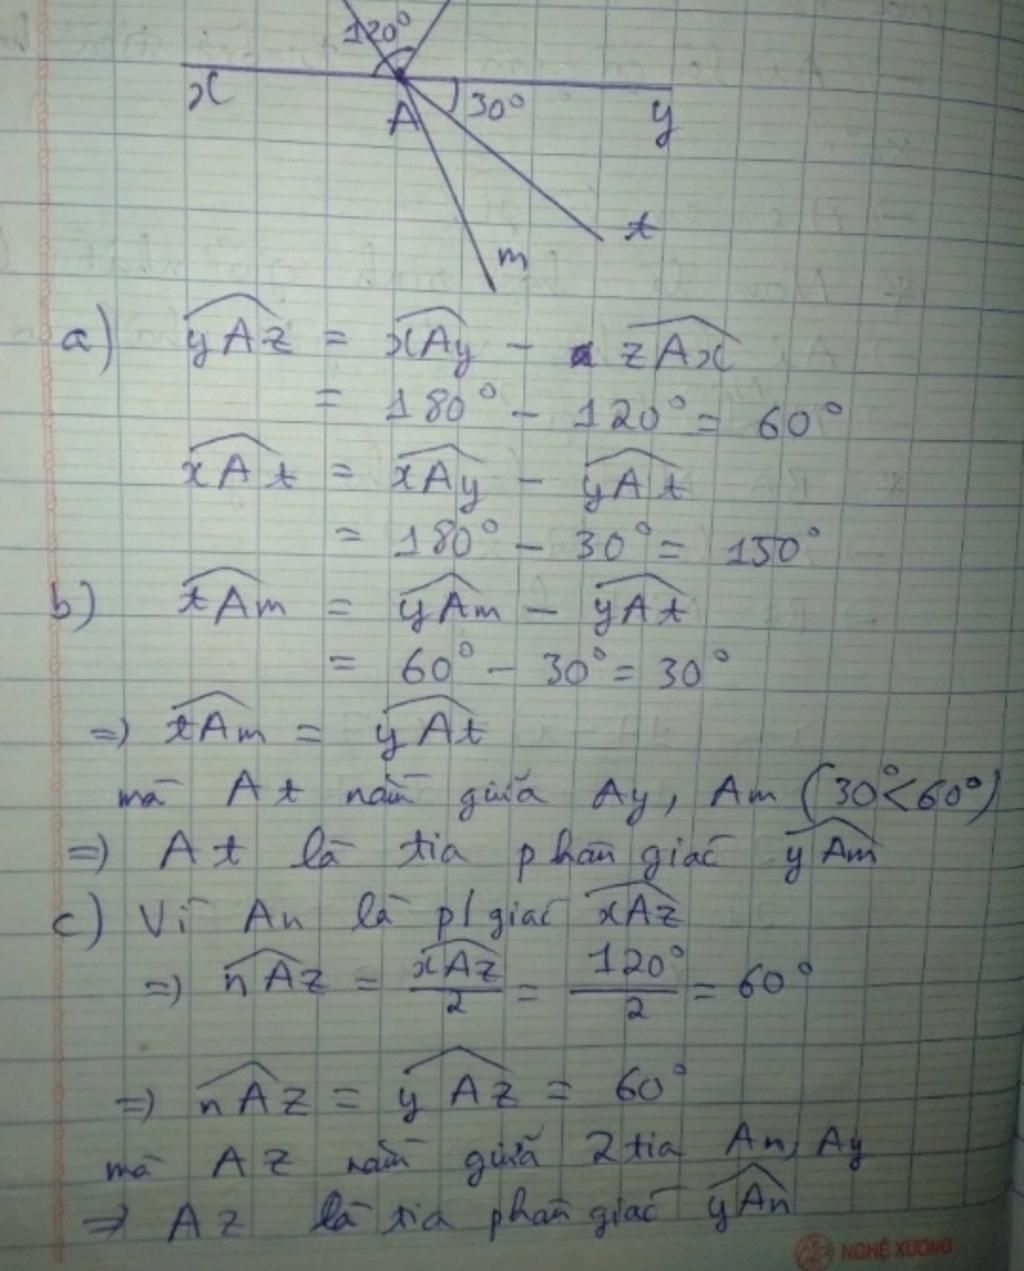 120°
x
A
30°
y
t
m
a) yAz = xAy - zAx
= 180° - 120° = 60°
xAt = xAy - yAt
= 180° - 30° = 150°
b) tAm = yAm - yAt
= 60° - 30° = 30°
=) tAm = yAt
mà At nằm giữa Ay, Am (30° < 60°)
=) At là tia phân giác yAm
c) Vì An là p/giác xAz
=) nAz = xAz/2 = 120°/2 = 60°
=) nAz = yAz = 60°
mà Az nằm giữa 2 tia An, Ay
=> Az là tia phân giác yAn
NGHỆ XƯƠNG